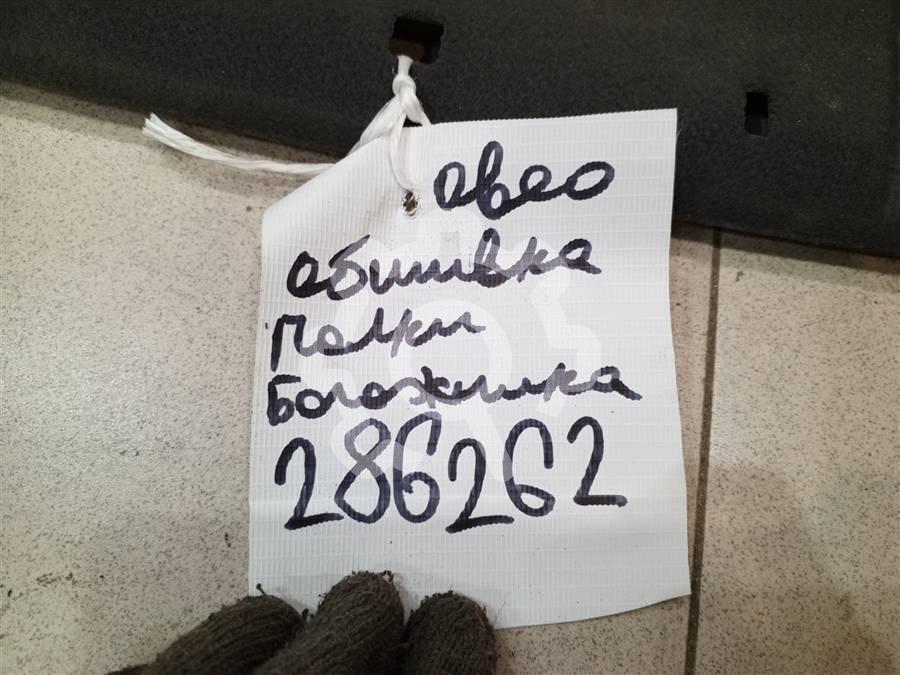 авео
обшивка
полки
богожника
286262